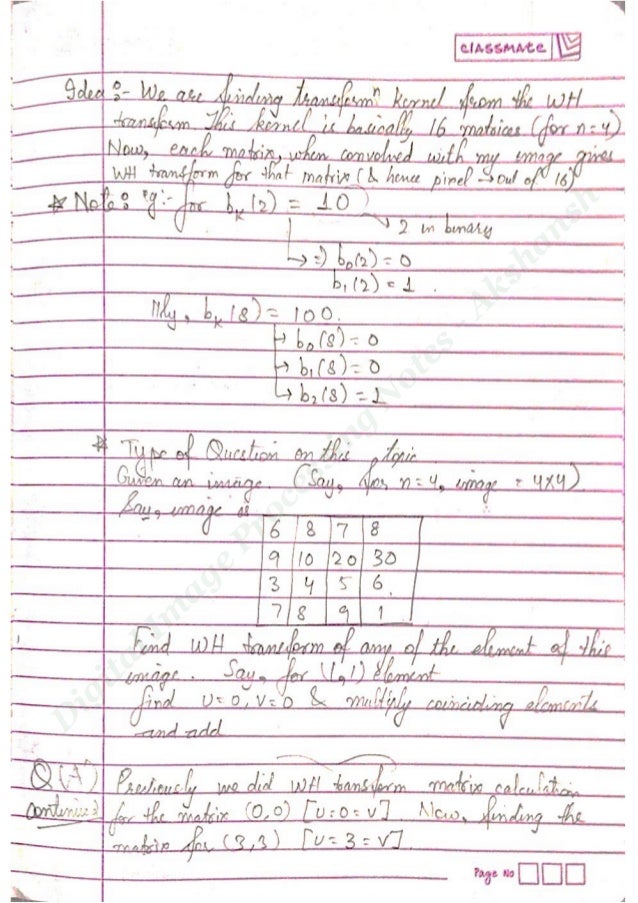 classmate
Idea :- We are finding transformⁿ Kernel from the WH
transform. This kernel is basically 16 matrices (for n=4)
Now, each matrix, when convolved with my image gives
WH transform for that matrix (& hence pixel → out of 16)
* Note: eg:- for bₖ(2) = 10
2 in binary
→ => b₀(2) = 0
b₁(2) = 1.
Illy, bₖ(8) = 100.
→ b₀(8) = 0
→ b₁(8) = 0
→ b₂(8) = 1
* Type of Question on this topic
Given an image. (Say, for n=4, image = 4x4)
Say, image is
6 8 7 8
9 10 20 30
3 4 5 6
7 8 9 1
Find WH transform of any of the element of this
image. Say, for (1,1) element
find U=0, V=0 & multiply coinciding elements
and add
Q(A) Previously we did WH transform matrix calculation
continued for the matrix (0,0) [U=0=V]. Now, finding the
matrix for (3,3) [U=3=V].
Page No
Digital Image Processing Notes - Akshansh